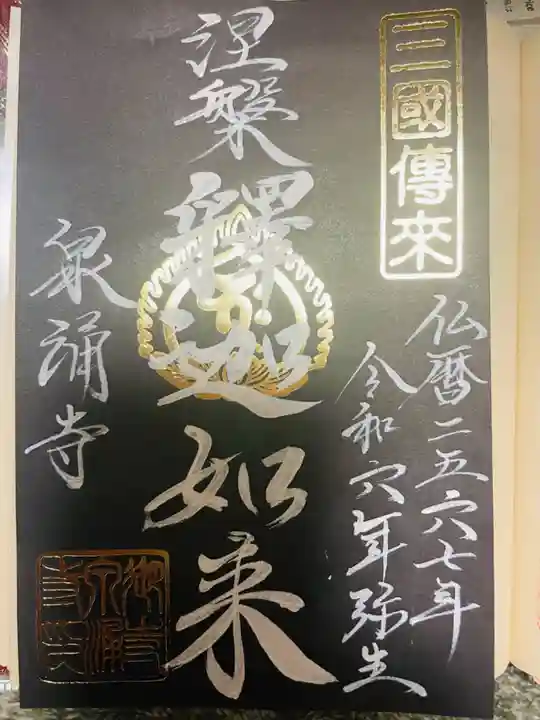 三國傳來
仏暦二五六七年
令和六年弥生
涅槃
釋迦如来
泉涌寺
御寺泉涌寺印